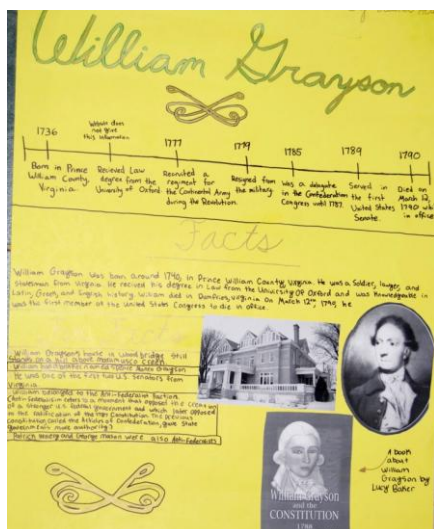 William Grayson
1736
Website does
not give
this information
1777
1779
1785
1789
1790
Born in Prince
William County,
Virginia.
Recieved Law
degree from the
University of Oxford
Recruited a
regiment for
the Continental Army
during the Revolution.
Resigned from
the military.
Was a delegate
in the Confederation
Congress until 1787.
Served in
the first
United States
Senate.
Died on
March 12,
1790
in office
Facts
William Grayson was born around 1740, in Prince William County, Virginia. He was a Soldier, lawyer, and
Statesman from Virginia. He recived his degree in Law from the University of Oxford and was Knowledgable in
Latin, Greek, and English history. William died in Dumfries, Virginia on March 12th, 1790, he
was the first member of the United States Congress to die in office.
William Grayson's house in Woodbridge still
stands on a hill above creek
William Grayson
He was one of the first two U.S. Senators from
Virginia
William belonged to the Anti-Federalist faction.
(Anti-Federalism refers to a movement that opposed the creation
of a stronger U.S. federal government and which later opposed
the ratification of the 1787 Constitution. The previous
constitution, called the Articles of Confederation, gave state
governments more authority)
Patrick Henry and George Mason were also Anti-Federalists
A book
about
William
Grayson by
Lucy Baker
William Grayson
and the
CONSTITUTION
1788